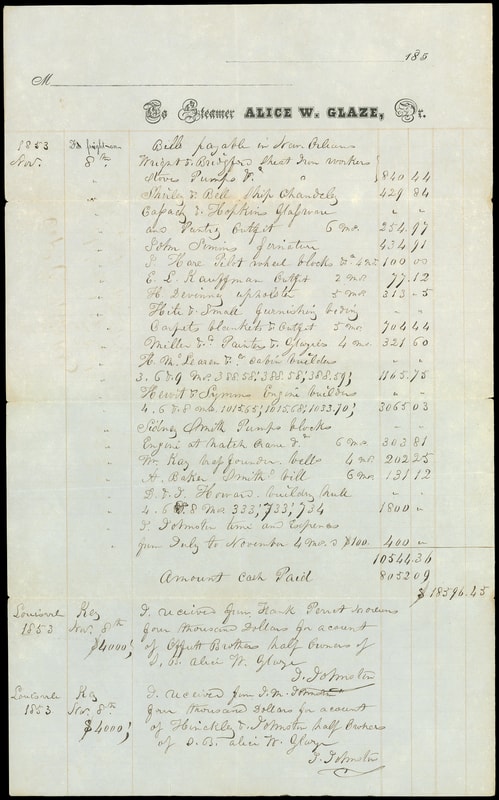 185
M
To Steamer ALICE W. GLAZE, Dr.
1853 Bills payable in New Orleans
Nov. 8th Wright & Bridgford Sheet Iron workers
Stove Pumps &c " 840 44
" Shirley & Bell Ship Chandely 429 84
" Cassady & Hopkins Glassware " "
" and Pantry Outfit 6 mo. 254.97
" John Simms furniture 434 91
" J. Hare Pilot wheel blocks &c 4 mo. 100 00
" E. L. Kauffman Outfit 2 mo. 77.12
" H. Devinny upholster 5 mo. 313 - 5
" Hite & Small furnishing
" Carpets blankets & Outfit 5 mo. 704 44
" Miller & Co Painter & Glazies 4 mo. 321 60
" Cabin builders " "
" 3. 6 & 9 mo. 388.58, 388.58, 388.59, 1165.75
" Hewit & Symms Engine builders " "
" 4. 6 & 8 mo. 1015.65, 1015.68, 1033.70, 3065 03
" Sidney Smith Pumps blocks " "
" Engine at hatch crane &c 6 mo. 303 81
" Wm. Kay brass founder bells 4 mo. 202 25
" A. Baker Smiths bill 6 mo. 131 12
" D. & J. Howard building hull " "
" 4. 6 & 8 mo. 333, 733, 734 1800 "
" J. Johnston time and Expenses
" from July to November 4 mo. $100. 400 "
10544.36
Amount Cash Paid 8052 09
$ 18596.45
Louisville Ky I. received from Hank
1853 Nov. 8th four thousand Dollars for account
$4000, of Offutt Brothers half Owners of
S. B. Alice W. Glaze
J. Johnston
Louisville Ky I. received from J. M. Johnston
1853 Nov. 8th four thousand Dollars for account
$4000, of Hinckley & Johnston half Owners
of S. B. Alice W. Glaze
J. Johnston